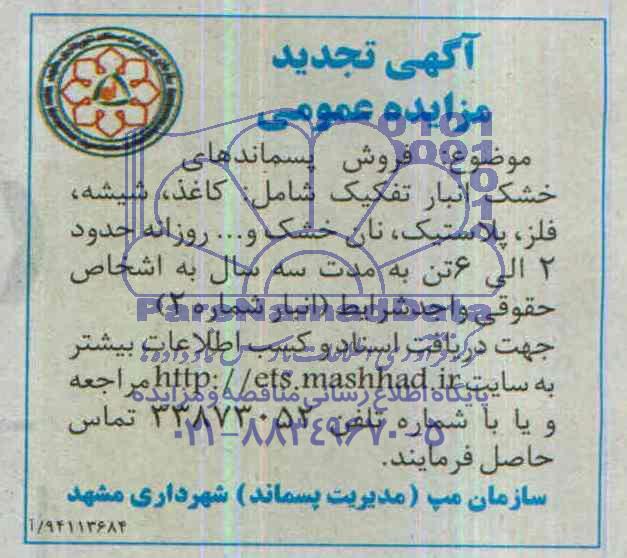 آگهی تجدید
مزایده عمومی
موضوع: فروش پسماندهای
خشک انبار تفکیک شامل: کاغذ، شیشه،
فلز، پلاستیک، نان خشک و... روزانه حدود
۲ الی ۶تن به مدت سه سال به اشخاص
حقوقی واجدشرایط (انبار شماره ۲)
جهت دریافت اسناد و کسب اطلاعات بیشتر
به سایت http://ets.mashhad.ir مراجعه
و یا با شماره تلفن ۳۳۸۷۳۰۵۲ تماس
حاصل فرمایند.
سازمان مپ (مدیریت پسماند) شهرداری مشهد
۹۴۱۱۳۶۸۴/آ
پایگاه اطلاع رسانی مناقصه و مزایده
۰۲۱-۸۸۳۴۹۶۷۰-۵